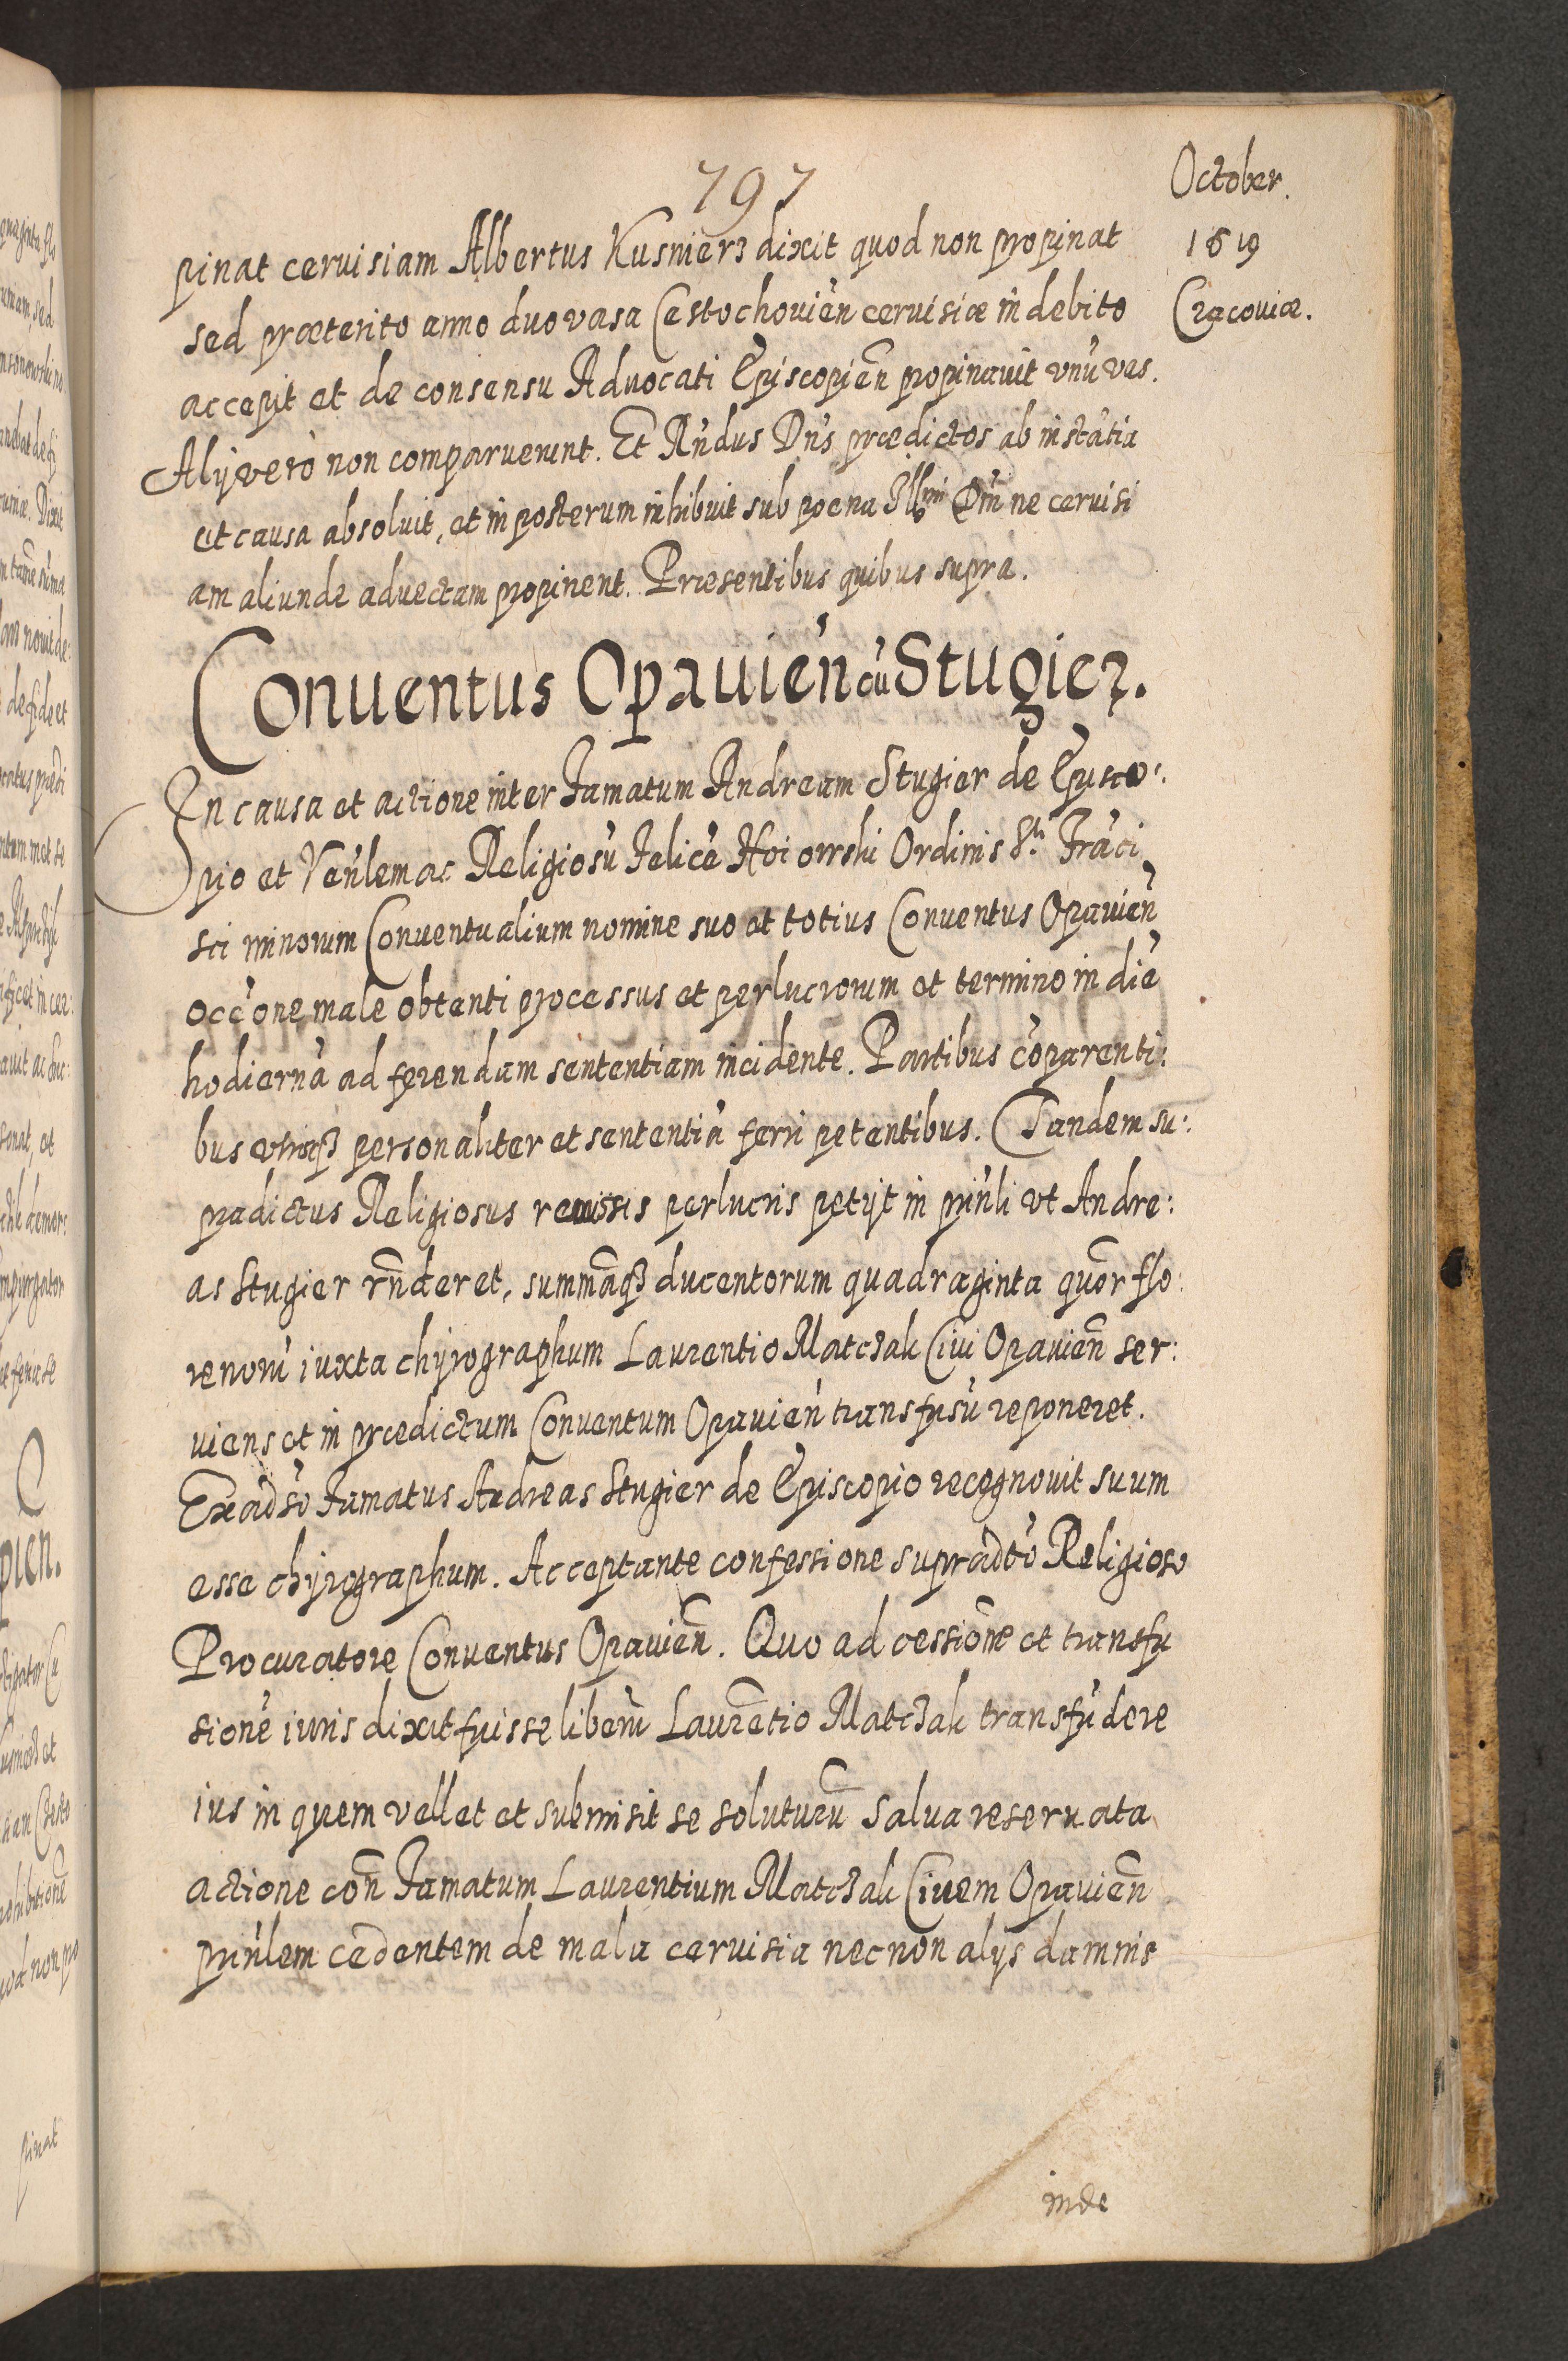 797
October.
1619
Cracouiæ.
pinat ceruisiam Albertus Kusnierz dixit quod non propinat
sed præterito anno duo vasa Cestochouien̄ ceruisiæ in debito
accepit et de consensu Aduocati Episcopien̄ propinauit vnū vas.
Alij verò non comparuerunt. Et Rn̄dus Dn̄s prædictos ab instātia
et causa absoluit, et in posterum inhibuit sub poena Illmi Dn̄i ne ceruisi
am aliunde aduectam propinent. Præsentibus quibus supra.
Conuentus Opauien̄ cū Stugier.
In causa et actione inter Famatum Andream Stugier de Episco:
pio et Ven̄lem ac Religiosū Felicē Ordinis Sti Frāci
sci minorum Conuentualium nomine suo et totius Conuentus Opauien̄
occ̄one male obtenti processus et perlucrorum et termino in die
hodiernā ad ferendam sententiam incidente. Partibus cōparenti:
bus vtrisqꝫ personaliter et sententiā ferri petentibus. Tandem su:
pradictus Religiosus remissis perlucris petijt in prin̄li vt Andre:
as Stugier rn̄deret, summāqꝫ ducentorum quadraginta quōr flo:
renorū iuxta chyrographum Laurentio Matczak Ciui Opauien̄ ser:
uiens et in prædictum Conuentum Opauien̄ transfusū reponeret.
Ex adso Famatus Andreas Stugier de Episcopio recognouit suum
esse chyrographum. Acceptante confessione supradto Religioso
Procuratore Conuentus Opauien̄. Quo ad cessionē et transfu
sionē iuris dixit fuisse liberū Laurētio Matczak transfūdere
ius in quem vellet et submisit se soluturū salua reseruata
actione con̄ Famatum Laurentium Matczak Ciuem Opauien̄
prin̄lem cedentem de mala ceruisia nec non alijs damnis
inde